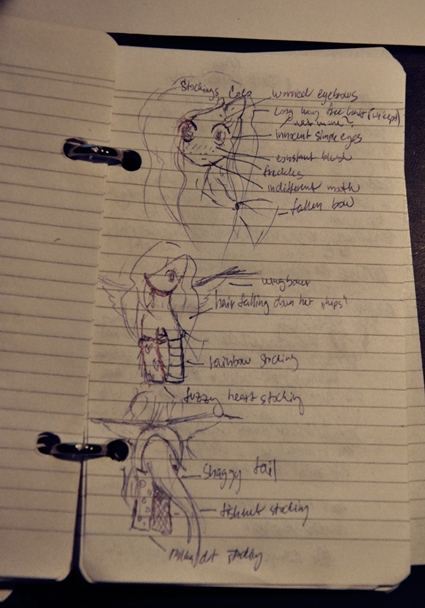 Stockings Cops
worried eyebrows
long wavy hair
innocent simple eyes
constant blush
freckles
indifferent mouth
fallen bow
hair falling down her
rainbow stocking
fuzzy heart stocking
shaggy tail
fishnet stocking
stocking